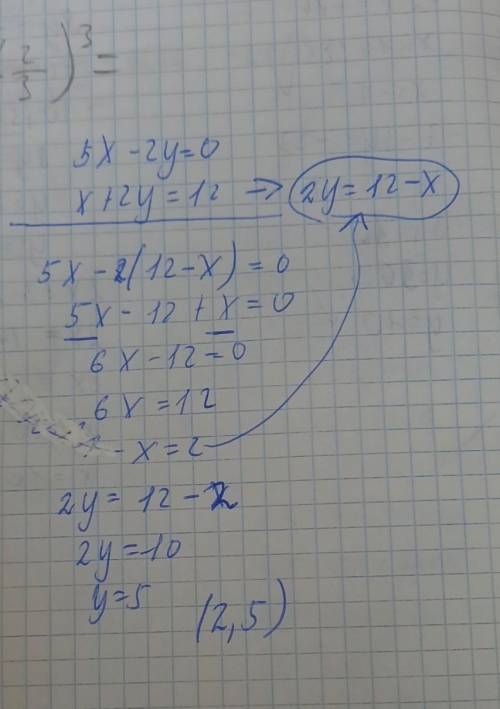 (2/3)³=
5x-2y=0
x+2y=12 → 2y=12-x
5x-2(12-x)=0
5x-12+x=0
6x-12=0
6x=12
-x=2
2y=12-2
2y=10
y=5
(2,5)